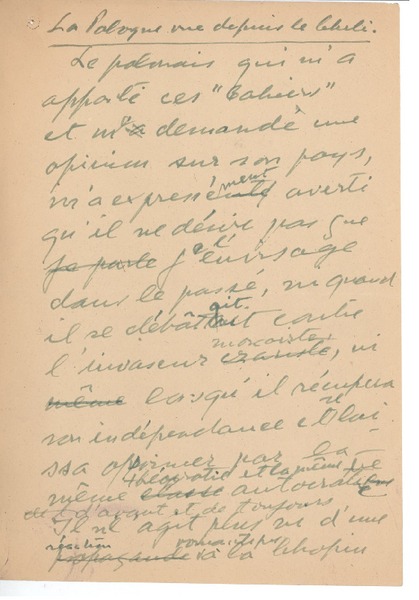 La Pologne vue depuis le Chili.
Le polonais qui m'a
apporté ces "Cahiers"
et m'a demandé une
opinion sur son pays,
m'a expressément averti
qu'il ne désire pas que
je parle je l'envisage
dans le passé, ni quand
il se débattait contre
l'envahisseur moscovite czariste, ni
même lorsqu'il récupera
son indépendance et se lai-
ssa opprimer par la
théocratie et la même
même classe autocratique
d'avant et de toujours
Il ne agit plus ni d'une
réaction romantique
propagande à la Chopin